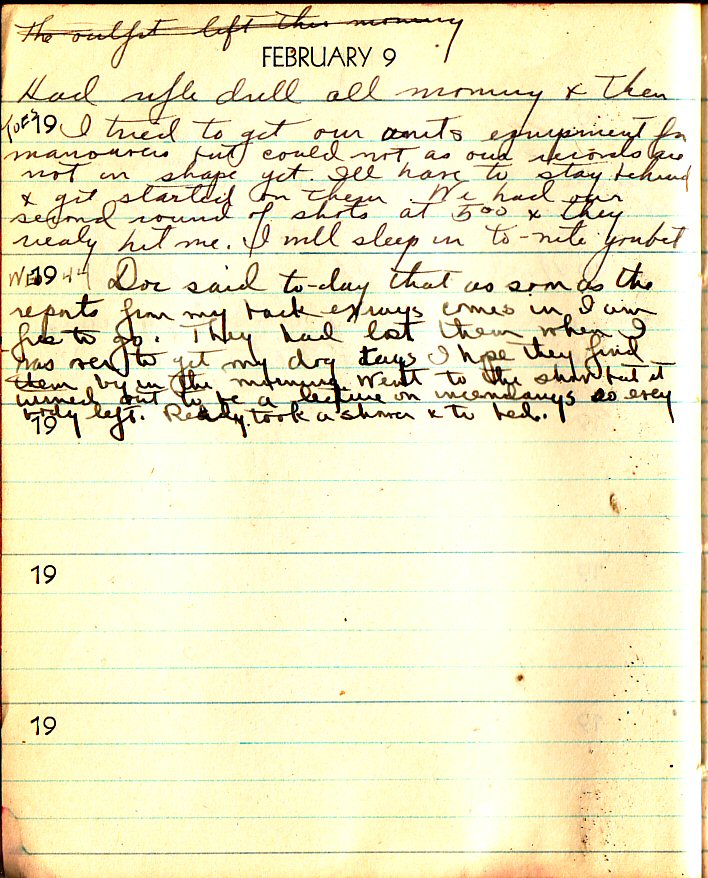 The outfit left this morning
FEBRUARY 9
Had rifle drill all morning & then
Tues 19 I tried to get our units equipment for
manouvers but could not as our records are
not in shape yet. Ill have to stay behind
& git started on them We had our
second round of shots at 500 & they
nealy hit me. I will sleep in to-nite youbet
Wed 1944 Doc said to-day that as soon as the
reports from my back exrays comes in I am
free to go. They had lost them when I
was over to get my dog tags I hope they find
them by in the morning. Went to the show but it
turned out to be a lecture on incendarys so every
body left. Ready. took a shower & to bed.
19
19
19